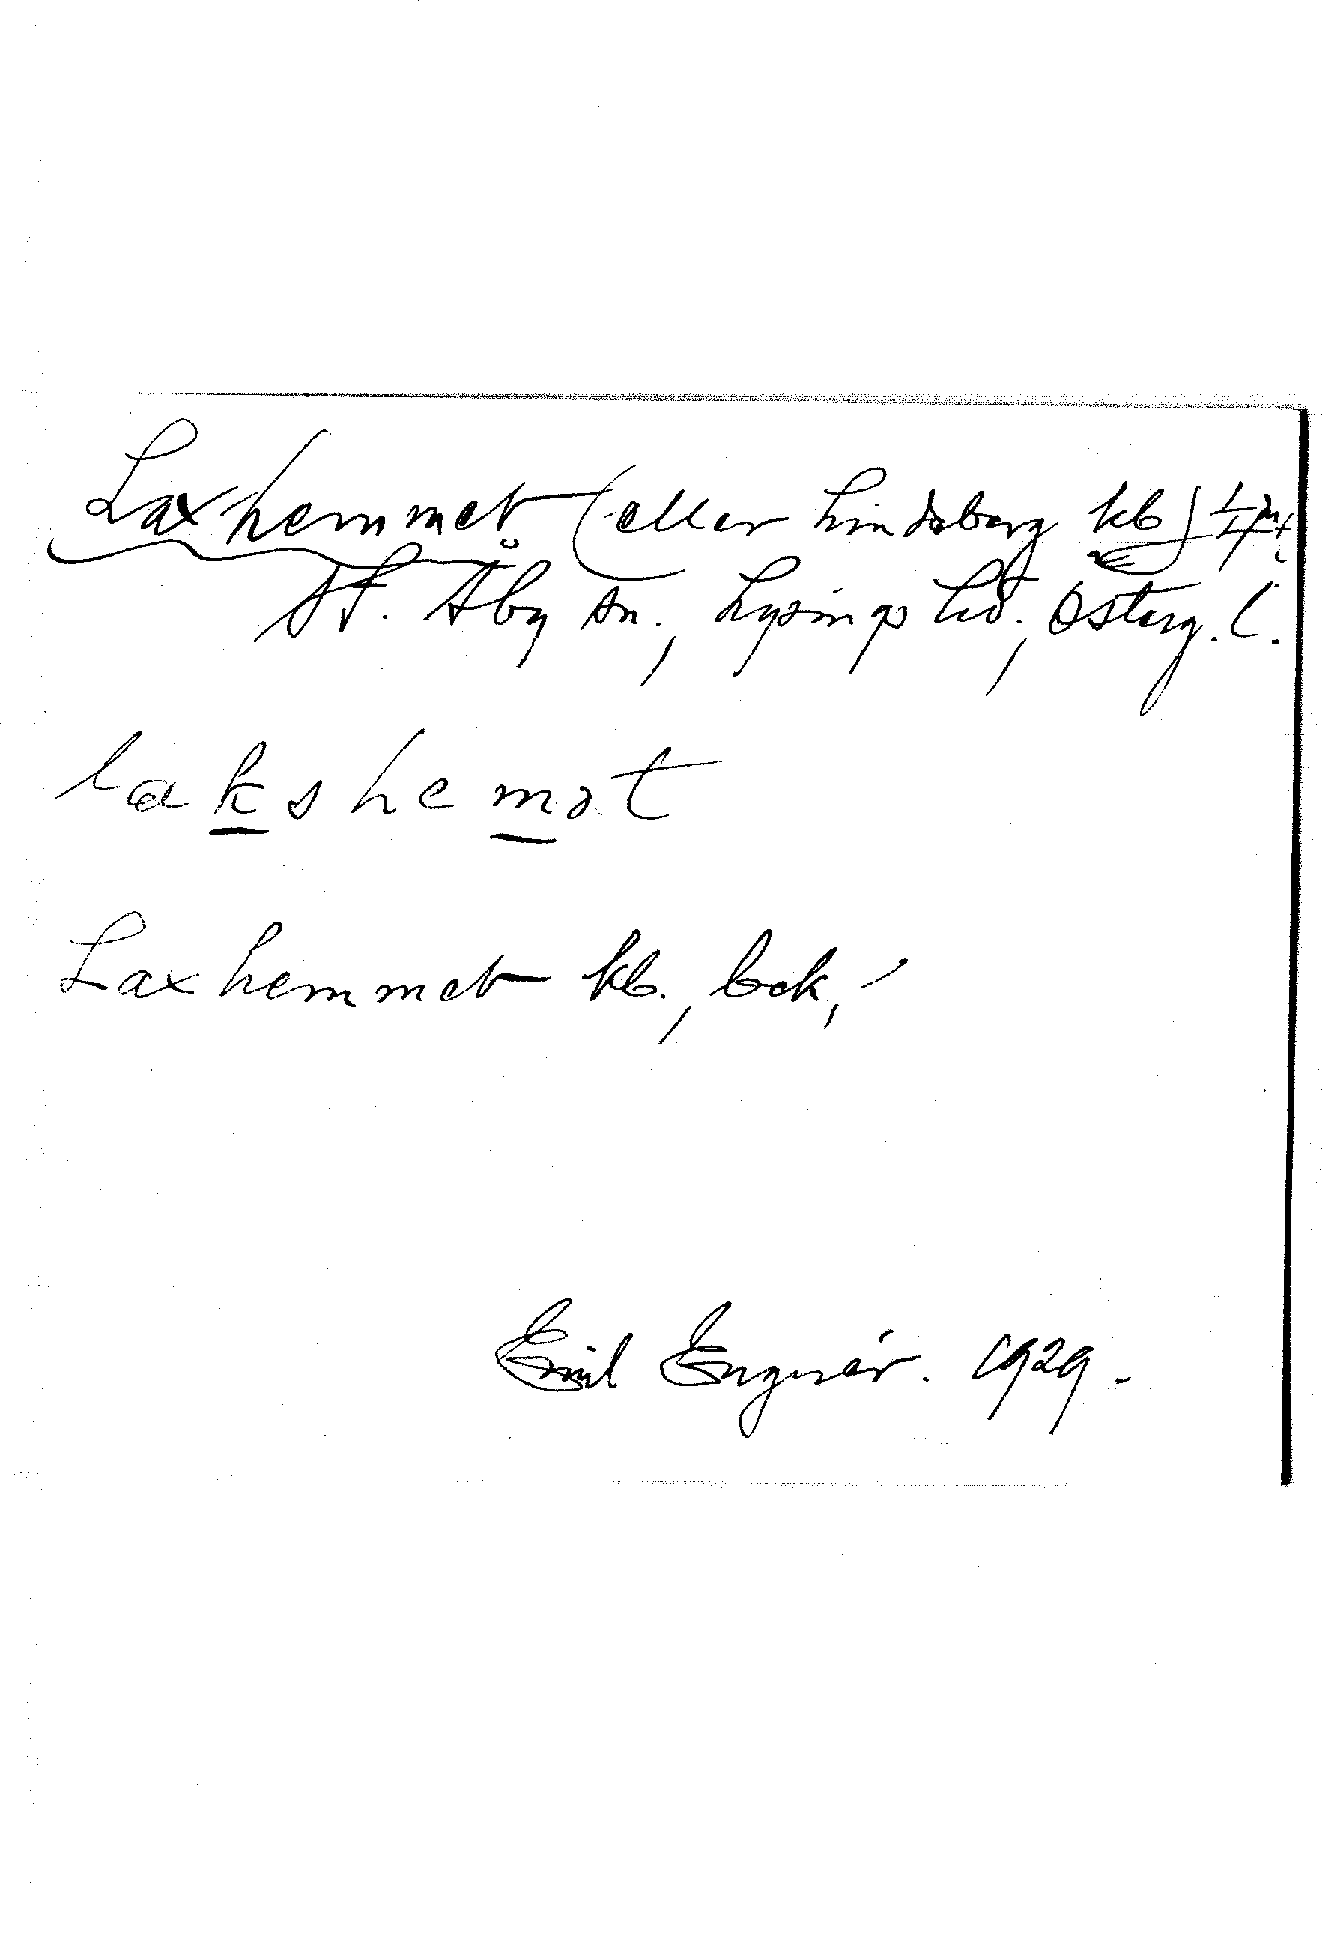 Laxhemmet (eller Lindsberg kb)
St. Åby sn., Lysings hd., Österg. l.
lakshemət
Laxhemmet kb., bek,
Emil Engnér. 1929.